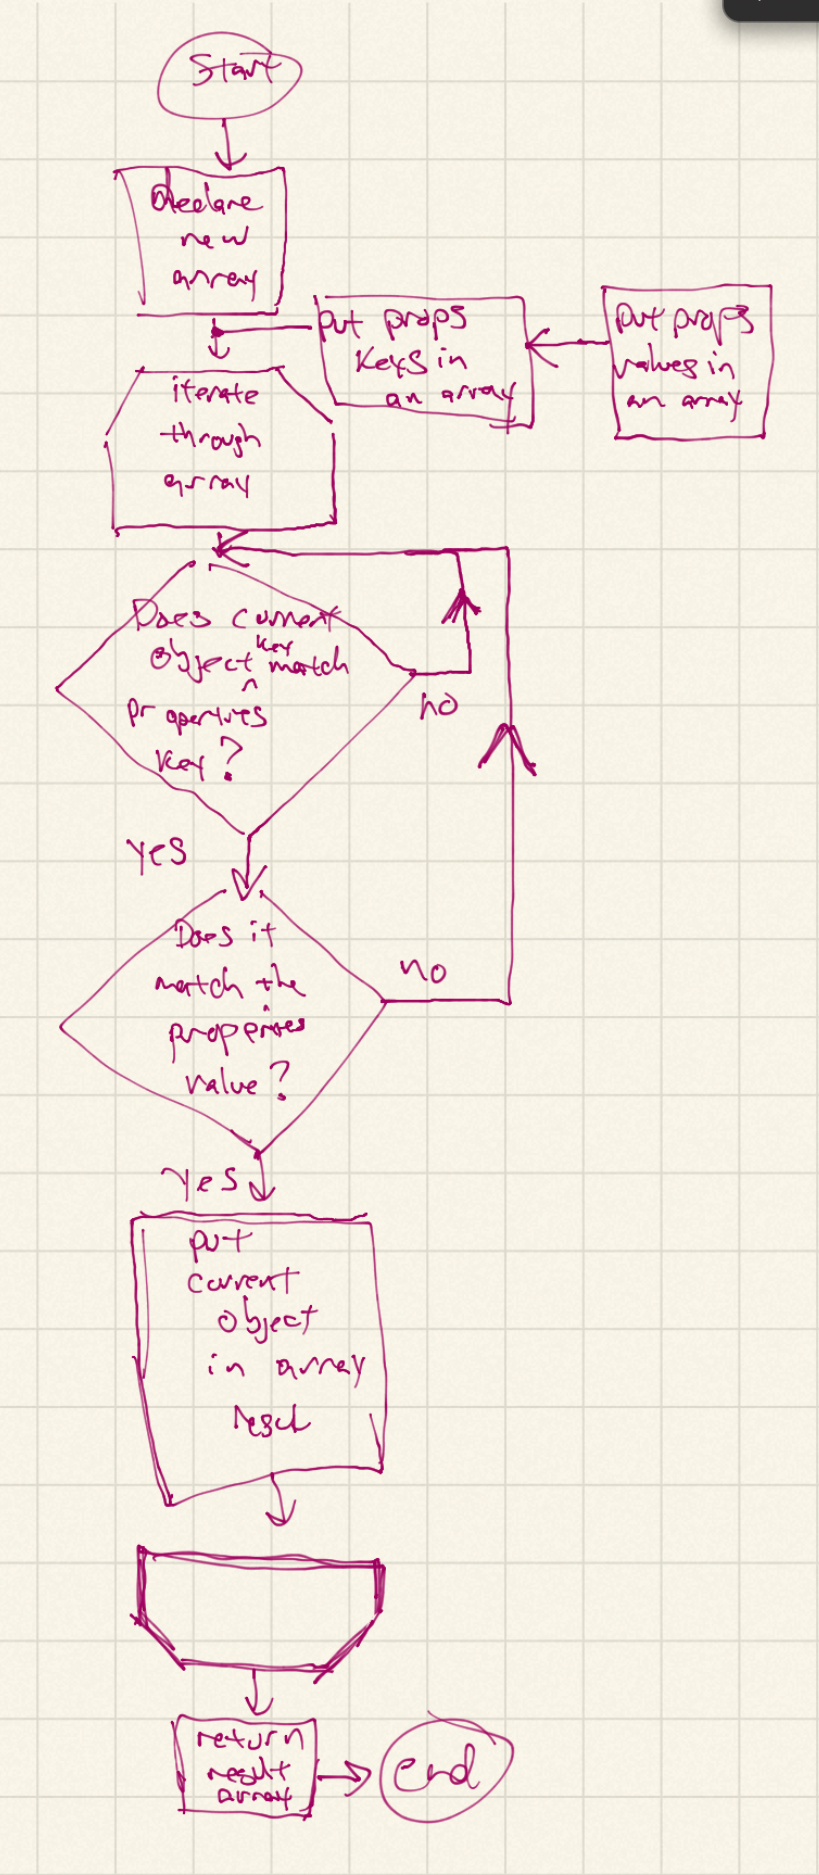 Start
Declare
new
array
put props
keys in
an array
put props
values in
an array
iterate
through
array
Does current
object key match
properties
key?
no
yes
Does it
match the
properties
value?
no
yes
put
current
object
in array
return
result
array
end